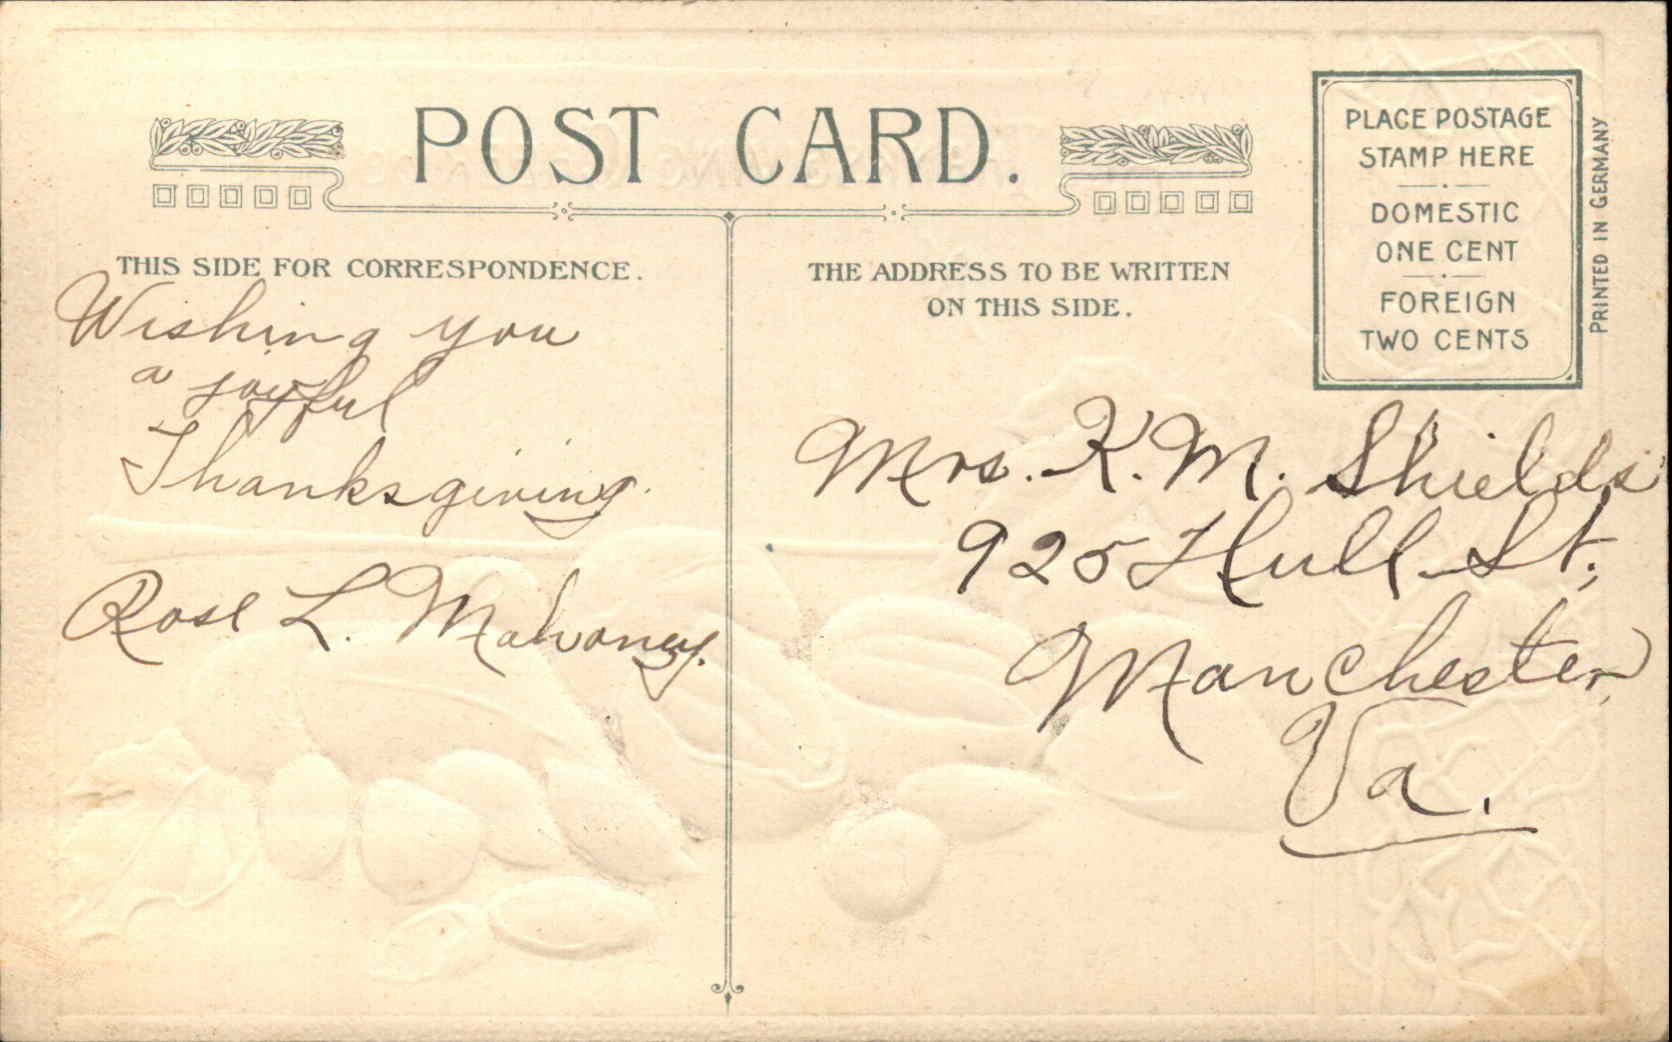 POST CARD.
THIS SIDE FOR CORRESPONDENCE.
Wishing you
a joyful
Thanksgiving.
Rose L. Mahoney.
THE ADDRESS TO BE WRITTEN
ON THIS SIDE.
PLACE POSTAGE
STAMP HERE
DOMESTIC
ONE CENT
FOREIGN
TWO CENTS
PRINTED IN GERMANY
Mrs. K. M. Shields
925 Hull St.,
Manchester,
Va.